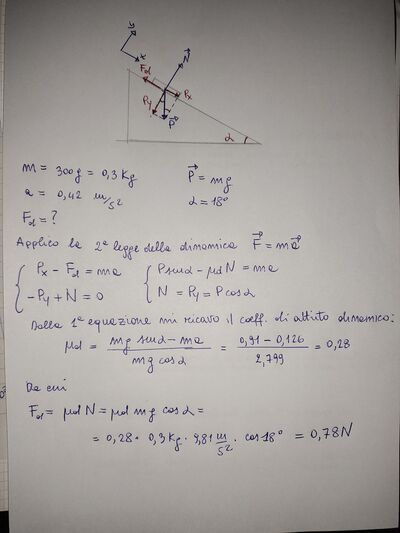 y
x
N
Fd
Px
Py
P
α
m = 300g = 0,3 Kg
P = mg
a = 0,42 m/s²
α = 18°
Fd = ?
Applico la 2ª legge della dinamica F = ma
Px - Fd = ma
P senα - μd N = ma
-Py + N = 0
N = Py = P cosα
Dalla 1ª equazione mi ricavo il coeff. di attrito dinamico:
μd = mg senα - ma / mg cosα = 0,91 - 0,126 / 2,799 = 0,28
Da cui
Fd = μd N = μd mg cosα =
= 0,28 · 0,3 Kg · 9,81 m/s² · cos 18° = 0,78 N